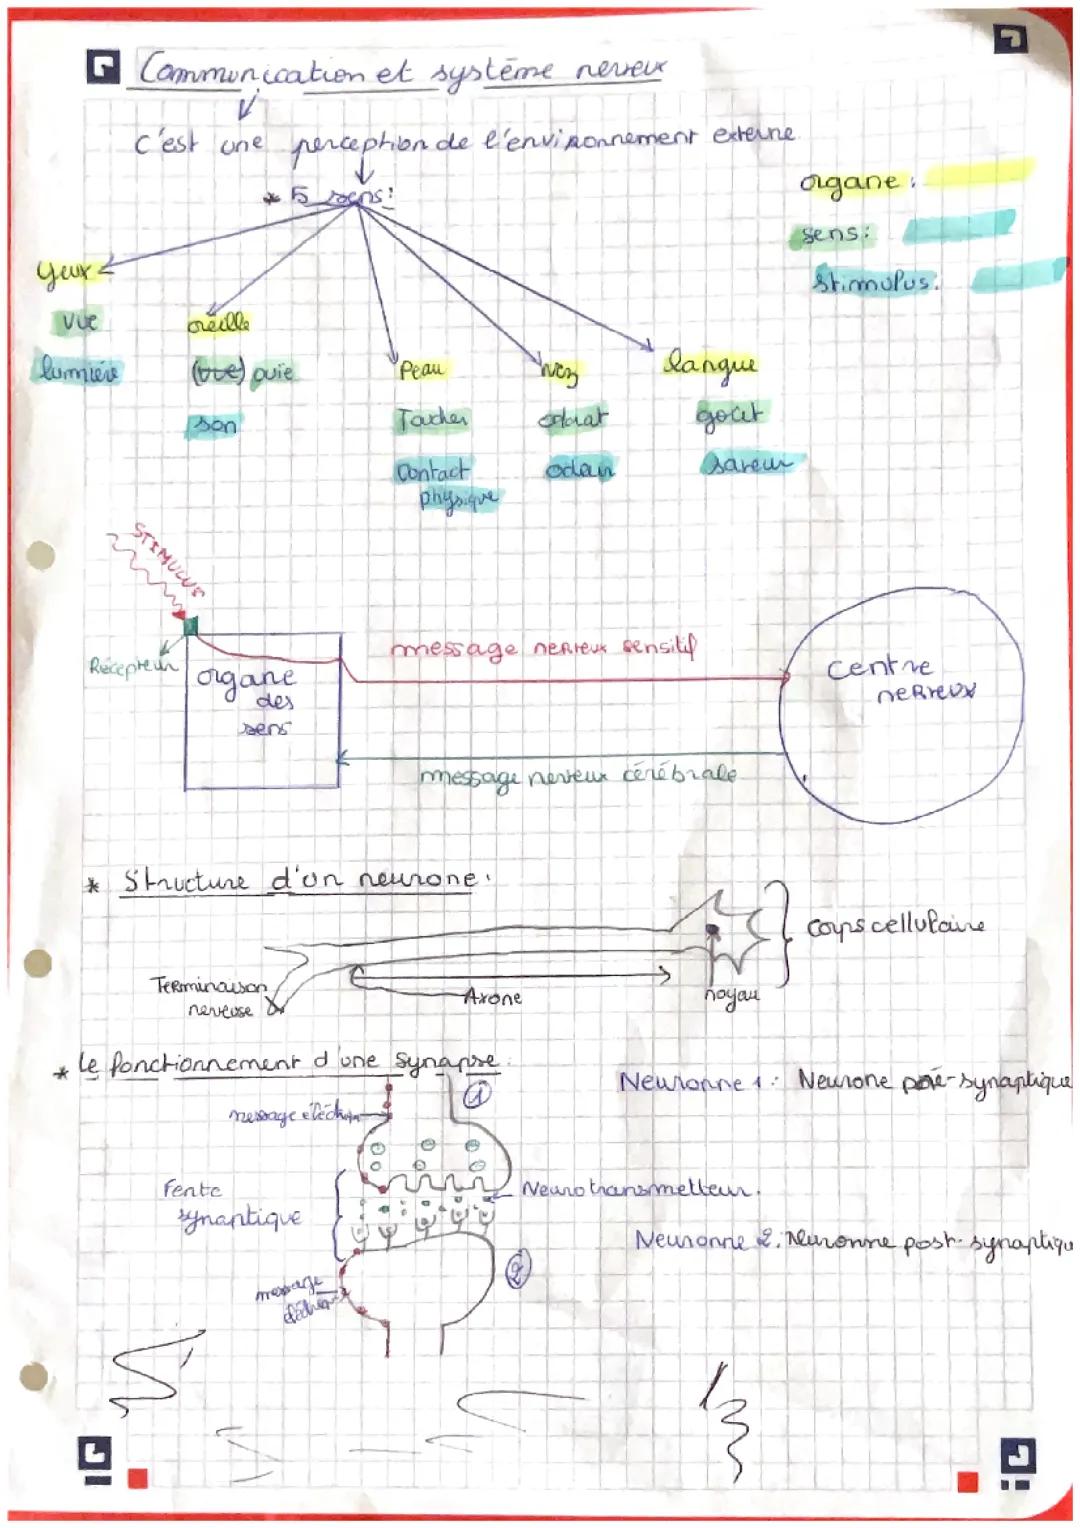 Communication et système nerveux
c'est une perception de l'environnement externe
* 5 sens:
organe:
sens:
stimulus:
yeux
vue
lumière
oreille
(vue) ouie
son
Peau
Toucher
Contact
physique
Nez
odorat
odeur
langue
goût
saveur
STIMULUS
Récepteur
organe
des
sens
message nerveux sensitif
message nerveux cérébrale
Centre
nerveux
* Structure d'un neurone:
Terminaison
nerveuse
Axone
noyau
corps cellulaire
* le fonctionnement d'une synapse:
1
message électrique
Fente
synaptique
Neurotransmetteur.
2
message
électrique
Neuronne 1: Neurone pré-synaptique
Neuronne 2: Neuronne post-synaptiqu